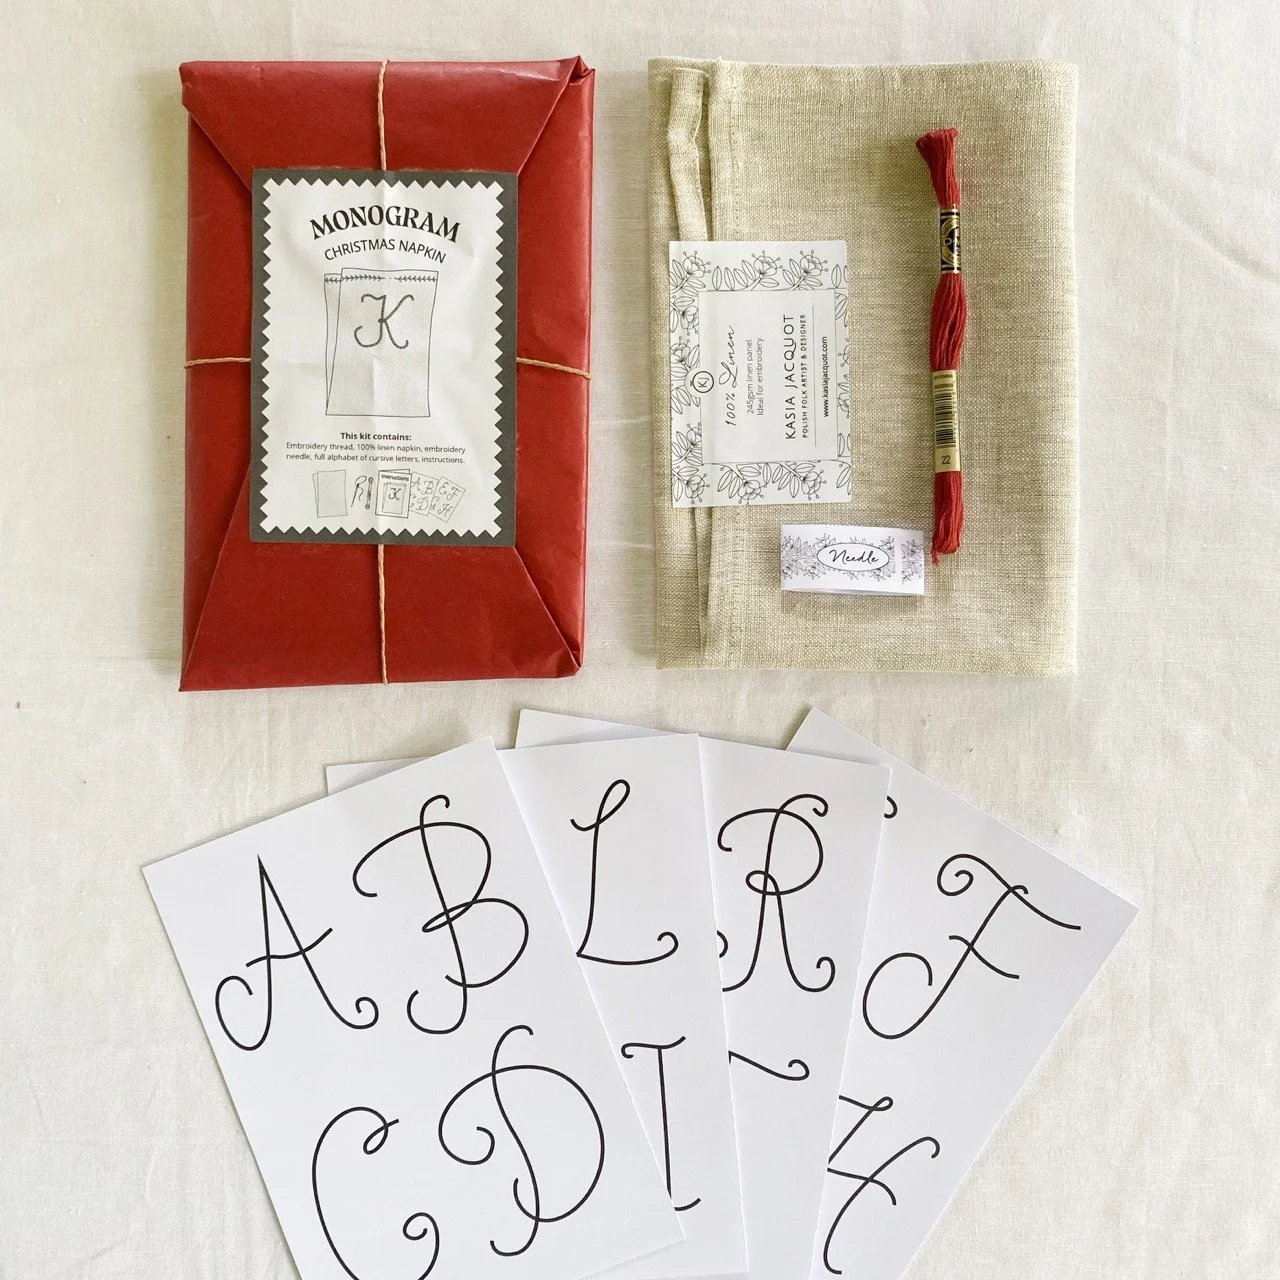 MONOGRAM
CHRISTMAS NAPKIN
K
This kit contains:
Embroidery thread, 100% linen napkin, embroidery
needle, full alphabet of cursive letters, instructions.
Instructions
K
A B
C D
E F
H
100% Linen
245gsm linen panel.
Ideal for embroidery.
KJ
KASIA JACQUOT
POLISH FOLK ARTIST & DESIGNER
www.kasiajacquot.com
22
Needle
A B
C D
L
R
F
H